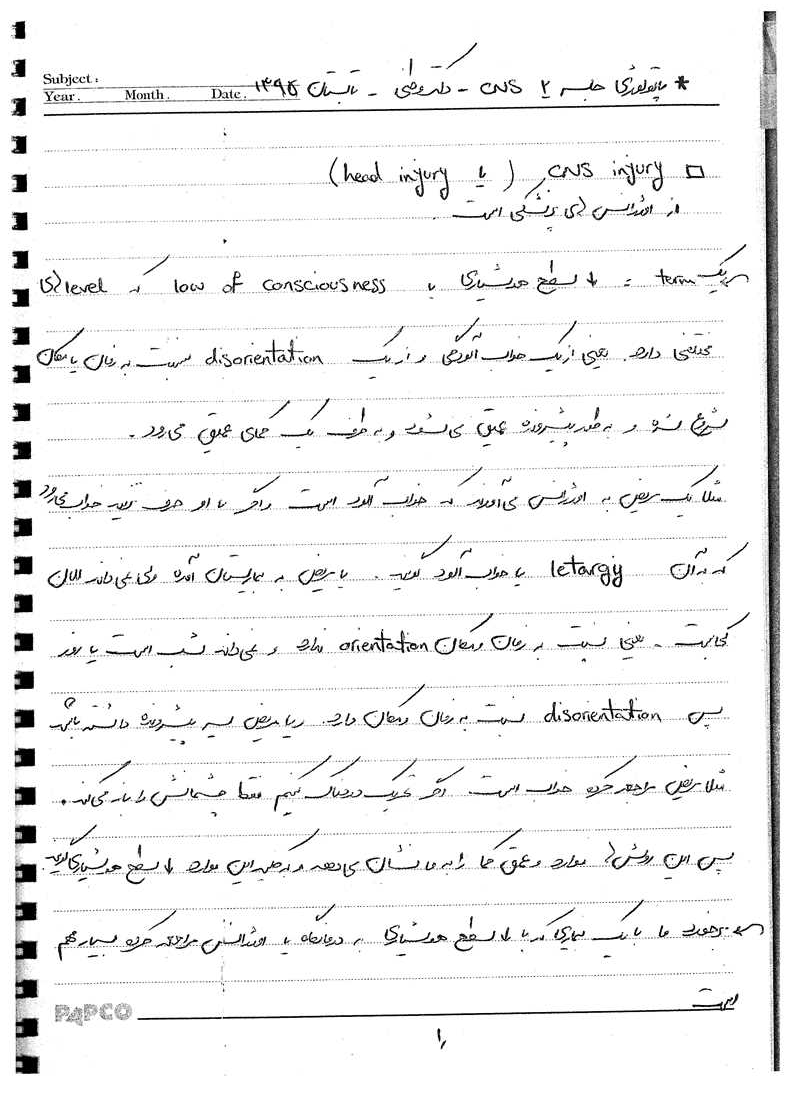 Subject :
Year . Month . Date .
* پاتولوژی جلسه ۲ CNS - دکتر وطنی - تابستان ۱۳۹۵
□ CNS injury ( یا head injury)
از اورژانس های پزشکی است .
یک term = ↓ سطح هوشیاری یا low of consciousness که level های
مختلفی دارد . یعنی از یک خواب آلودگی و از یک disorientation نسبت به زمان یا مکان
شروع شده و به طور پیشرونده عمیق می شود و به طرف یک کمای عمیق می رود .
مثلا یک مریض به اورژانس می آورند که خواب آلود است و اگر با او حرف نزنید خواب می رود
که به آن letargy یا خواب آلود گویند . یا مریض به بیمارستان آمده ولی نمی داند الان
کجاست - یعنی نسبت به زمان و مکان orientation ندارد و نمی داند شب است یا روز
پس disorientation نسبت به زمان و مکان دارد . و یا مریض سیر پیشرونده داشته باشد
مثلا مریض مراجعه کرده خواب است اگر تحریک دردناک کنیم فقط چشمانش را باز می کند .
پس این روش ها موارد و عمق کما را به ما نشان می دهد و به همه این موارد ↓ سطح هوشیاری گویند
برخورد ما با یک بیماری که با ↓ سطح هوشیاری به درمانگاه یا اورژانس مراجعه کرده بسیار مهم
است
PAPCO
۱